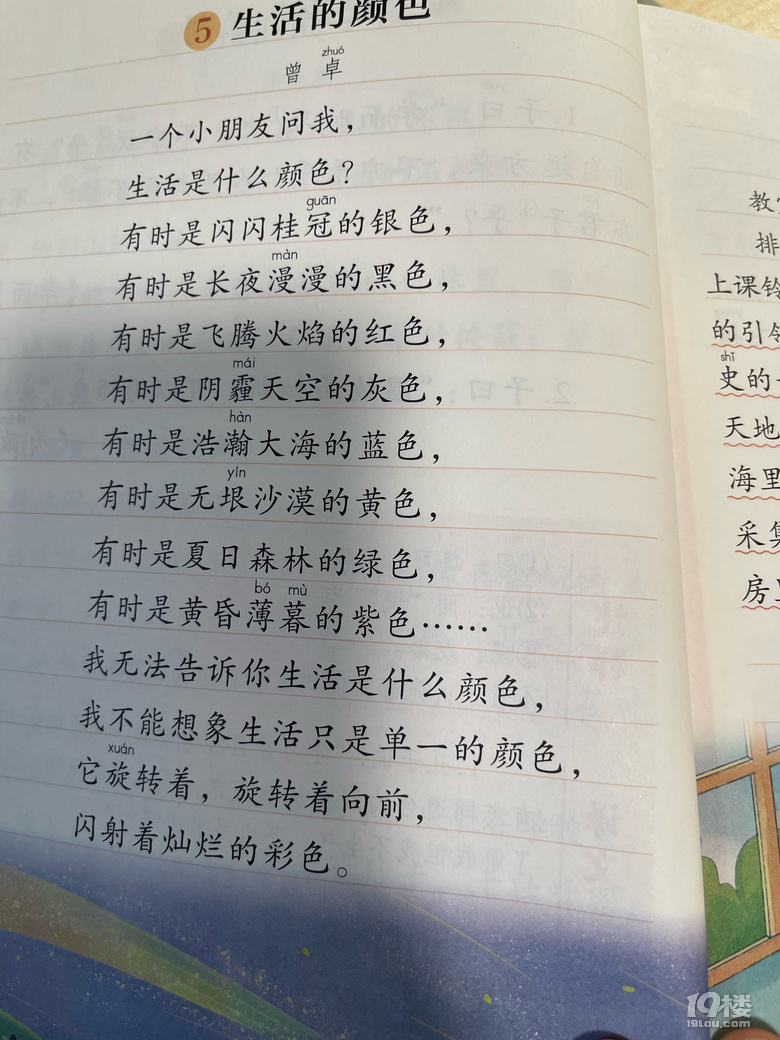 5 生活的颜色
zhuó
曾卓
一个小朋友问我，
生活是什么颜色？
guān
有时是闪闪桂冠的银色，
màn
有时是长夜漫漫的黑色，
有时是飞腾火焰的红色，
mái
有时是阴霾天空的灰色，
hàn
有时是浩瀚大海的蓝色，
yín
有时是无垠沙漠的黄色，
有时是夏日森林的绿色，
bó mù
有时是黄昏薄暮的紫色……
我无法告诉你生活是什么颜色，
我不能想象生活只是单一的颜色，
xuán
它旋转着，旋转着向前，
闪射着灿烂的彩色。
排
上课铃
的引领
shǐ
史的
天地
海里
采集
房
19楼
19lou.com